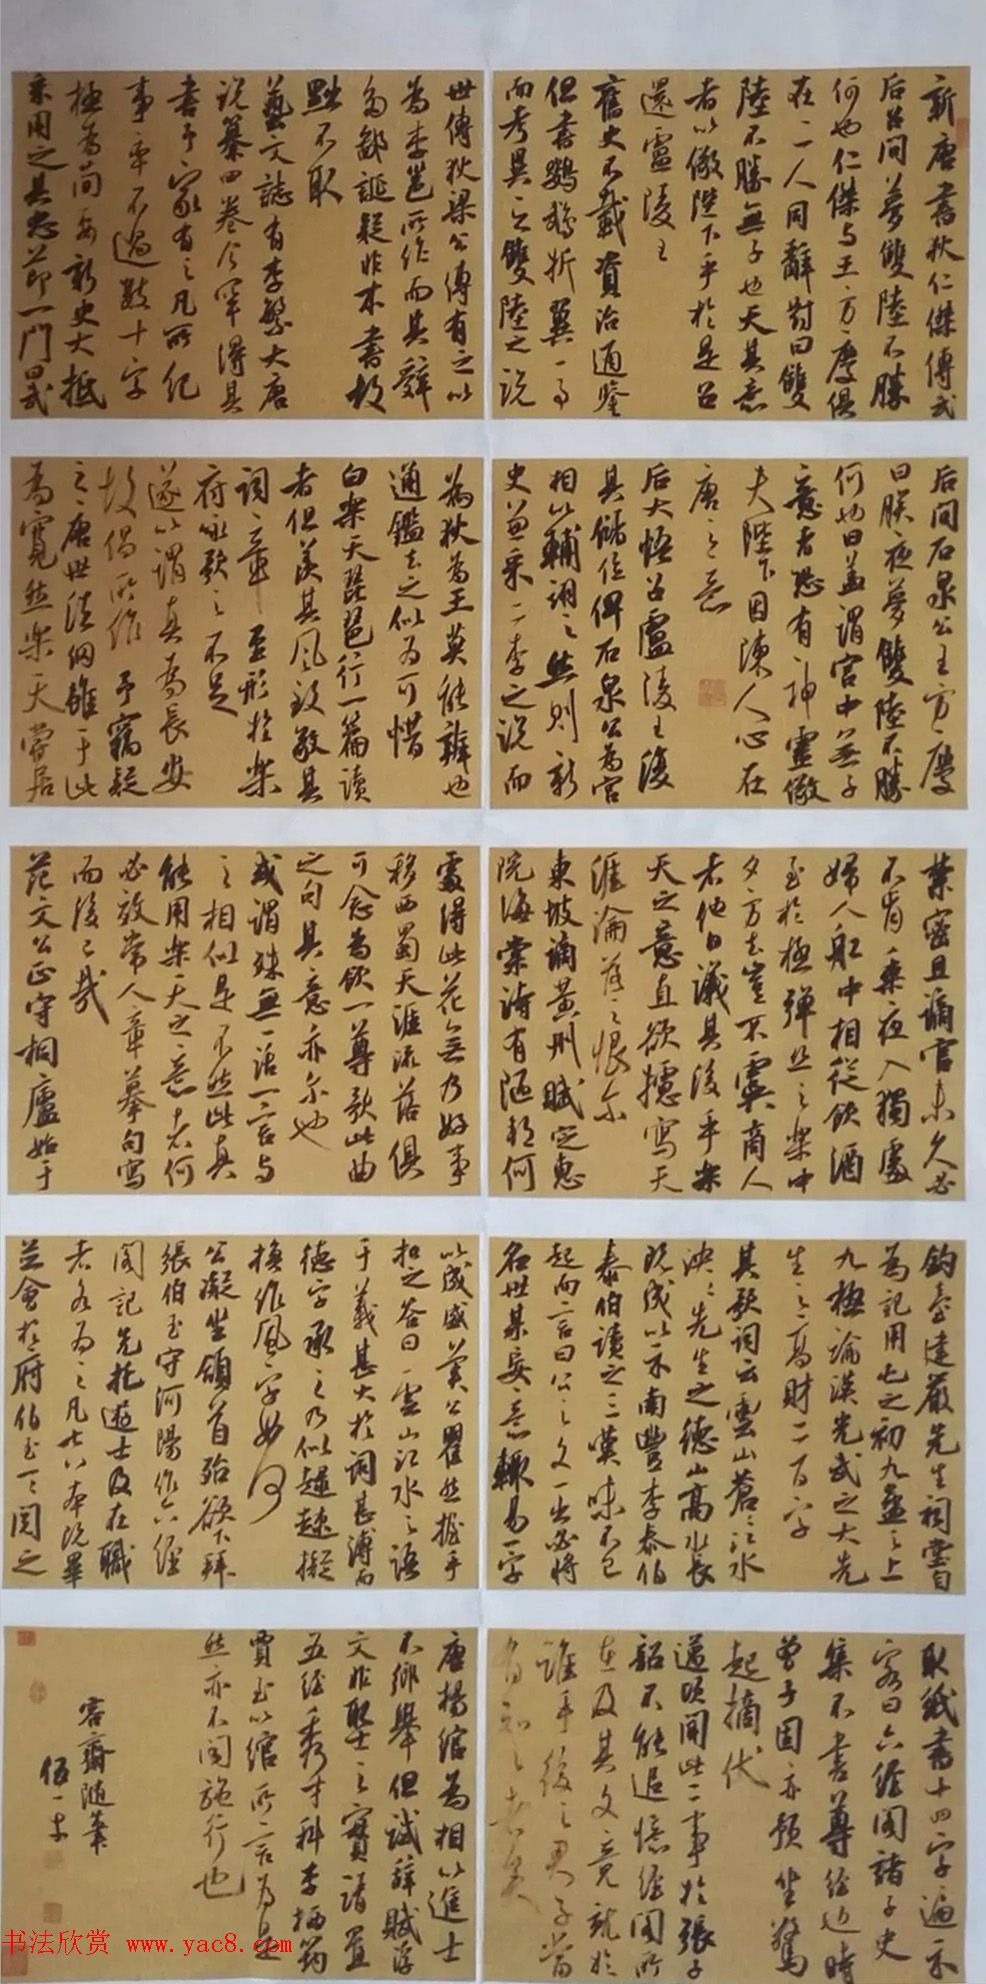 新唐書狄仁傑傳武
后召問夢雙陸不勝
何也仁傑與王方慶俱
在二人同辭對曰雙
陸不勝無子也天其意
者以儆陛下乎於是召
還盧陵王
舊史不載資治通鑒
但書鸚鵡折翼一事
而考異云雙陸之說
世傳狄梁公傳有之以
為李邕所作而其辭
多鄙誕疑非本書故
黜不取
藝文誌有李繁大唐
說纂四卷今罕得其
書予家有之凡所紀
事率不過數十字
極為簡要新史大抵
采用之其忠節一門曰武
后問石泉公王方慶
曰朕夜夢雙陸不勝
何也曰蓋謂宮中無子
意者恐有神靈儆
夫陛下因陳人心在
唐之意
后大悟召盧陵王復
其儲位俾石泉公為宮
相以輔翊之然則新
史兼采二李之說而
為狄為王莫能辨也
通鑑去之似為可惜
白樂天琵琶行一篇讀
者但羨其風致敬其
詞章至形於樂
府詠歌之不足
遂以謂真為長安
故倡所作予竊疑
之唐世法網雖于此
為寬然樂天嘗居
禁密且謫官未久必
不肯乘夜入獨處
婦人舡中相從飲酒
至於極彈絲之樂中
夕方去豈不虞商人
者他日議其後乎樂
天之意直欲攄寫天
涯淪落之恨尔
東坡謫黃州賦定惠
院海棠詩有陋邦何
處得此花無乃好事
移西蜀天涯流落俱
可念為飲一尊歌此曲
之句其意亦尔也
或謂殊無一話一言與
之相似是不然此真
能用樂天之意者何
必效常人章摹句寫
而後已哉
范文公正守桐廬始于
釣臺建嚴先生祠嘗自
為記用屯之初九蠱之上
九極論漢光武之大先
生之高財二百字
其歌詞云雲山蒼々江水
泱々先生之德山高水長
既成以示南豐李泰伯
泰伯讀之三嘆味不已
起而言曰公之文一出必將
名世某妄意輒易一字
以成盛美公瞿然握手
扣之答曰雲山江水之語
于義甚大於詞甚溥而
德字承之乃似趢趚擬
換作風字如何
公凝坐頷首殆欲下拜
張伯玉守河陽作六經
閣記先托遊士及在職
者各為之凡七八本既畢
並會於府伯玉一一閱之
取紙書十四字遍示
客曰六經閣諸子史
集不書尊經也時
曾子固亦預坐驚
起摘伏
邁頃聞此二事於張子
韶不能追憶經閣所
在及其文竟就於
誰手後之君子當
有知之者矣
唐楊綰為相以進士
不鄉舉但試辭賦浮
文非取士之實請置
五經秀才科李栖筠
賈至以綰所言為是
然亦不聞施行也
容齋隨筆
书法欣赏 www.yac8.com